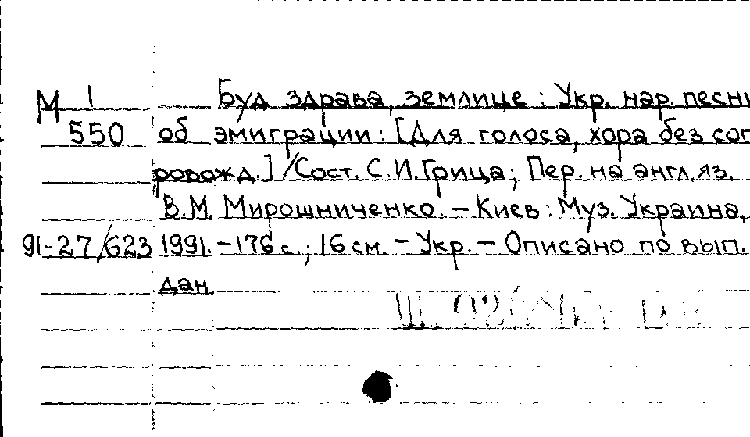 М 1 Буд здрава, землице : Укр. нар. песни
550 об эмиграции : [Для голоса, хора без соп
ровожд.] / Сост. С.И. Грица ; Пер. на англ. яз.
В.М. Мирошниченко. – Киев : Муз. Украина,
91-27/623 1991. – 176 с. ; 16 см. – Укр. – Описано по вып.
дан.